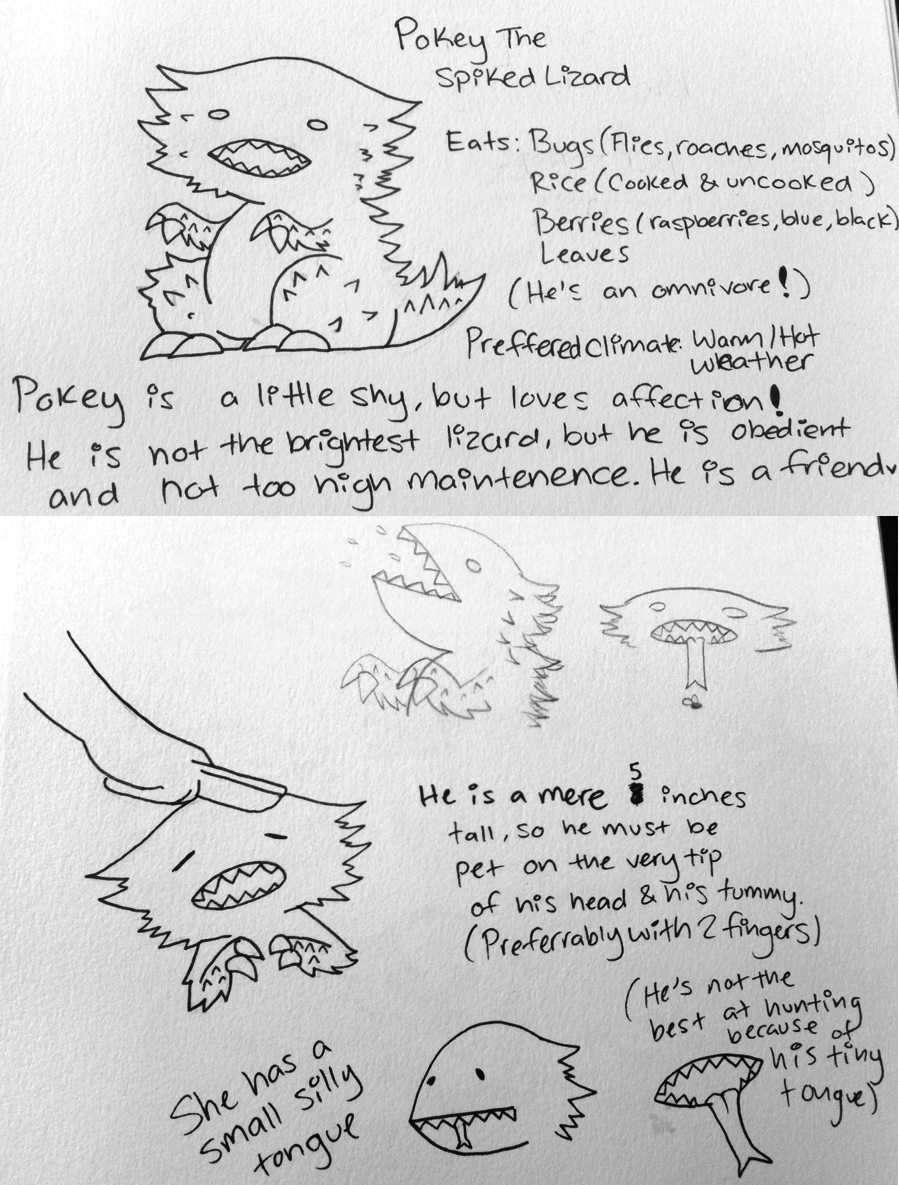 Pokey The
Spiked Lizard
Eats: Bugs (Flies, roaches, mosquitos)
Rice (Cooked & uncooked)
Berries (raspberries, blue, black)
Leaves
(He's an omnivore!)
Preffered climate: Warm/Hot
weather
Pokey is a little shy, but loves affection!
He is not the brightest lizard, but he is obedient
and not too high maintenence. He is a friend
He is a mere 5 inches
tall, so he must be
pet on the very tip
of his head & his tummy.
(Preferrably with 2 fingers)
(He's not the
best at hunting
because of
his tiny
tongue)
She has a
small silly
tongue